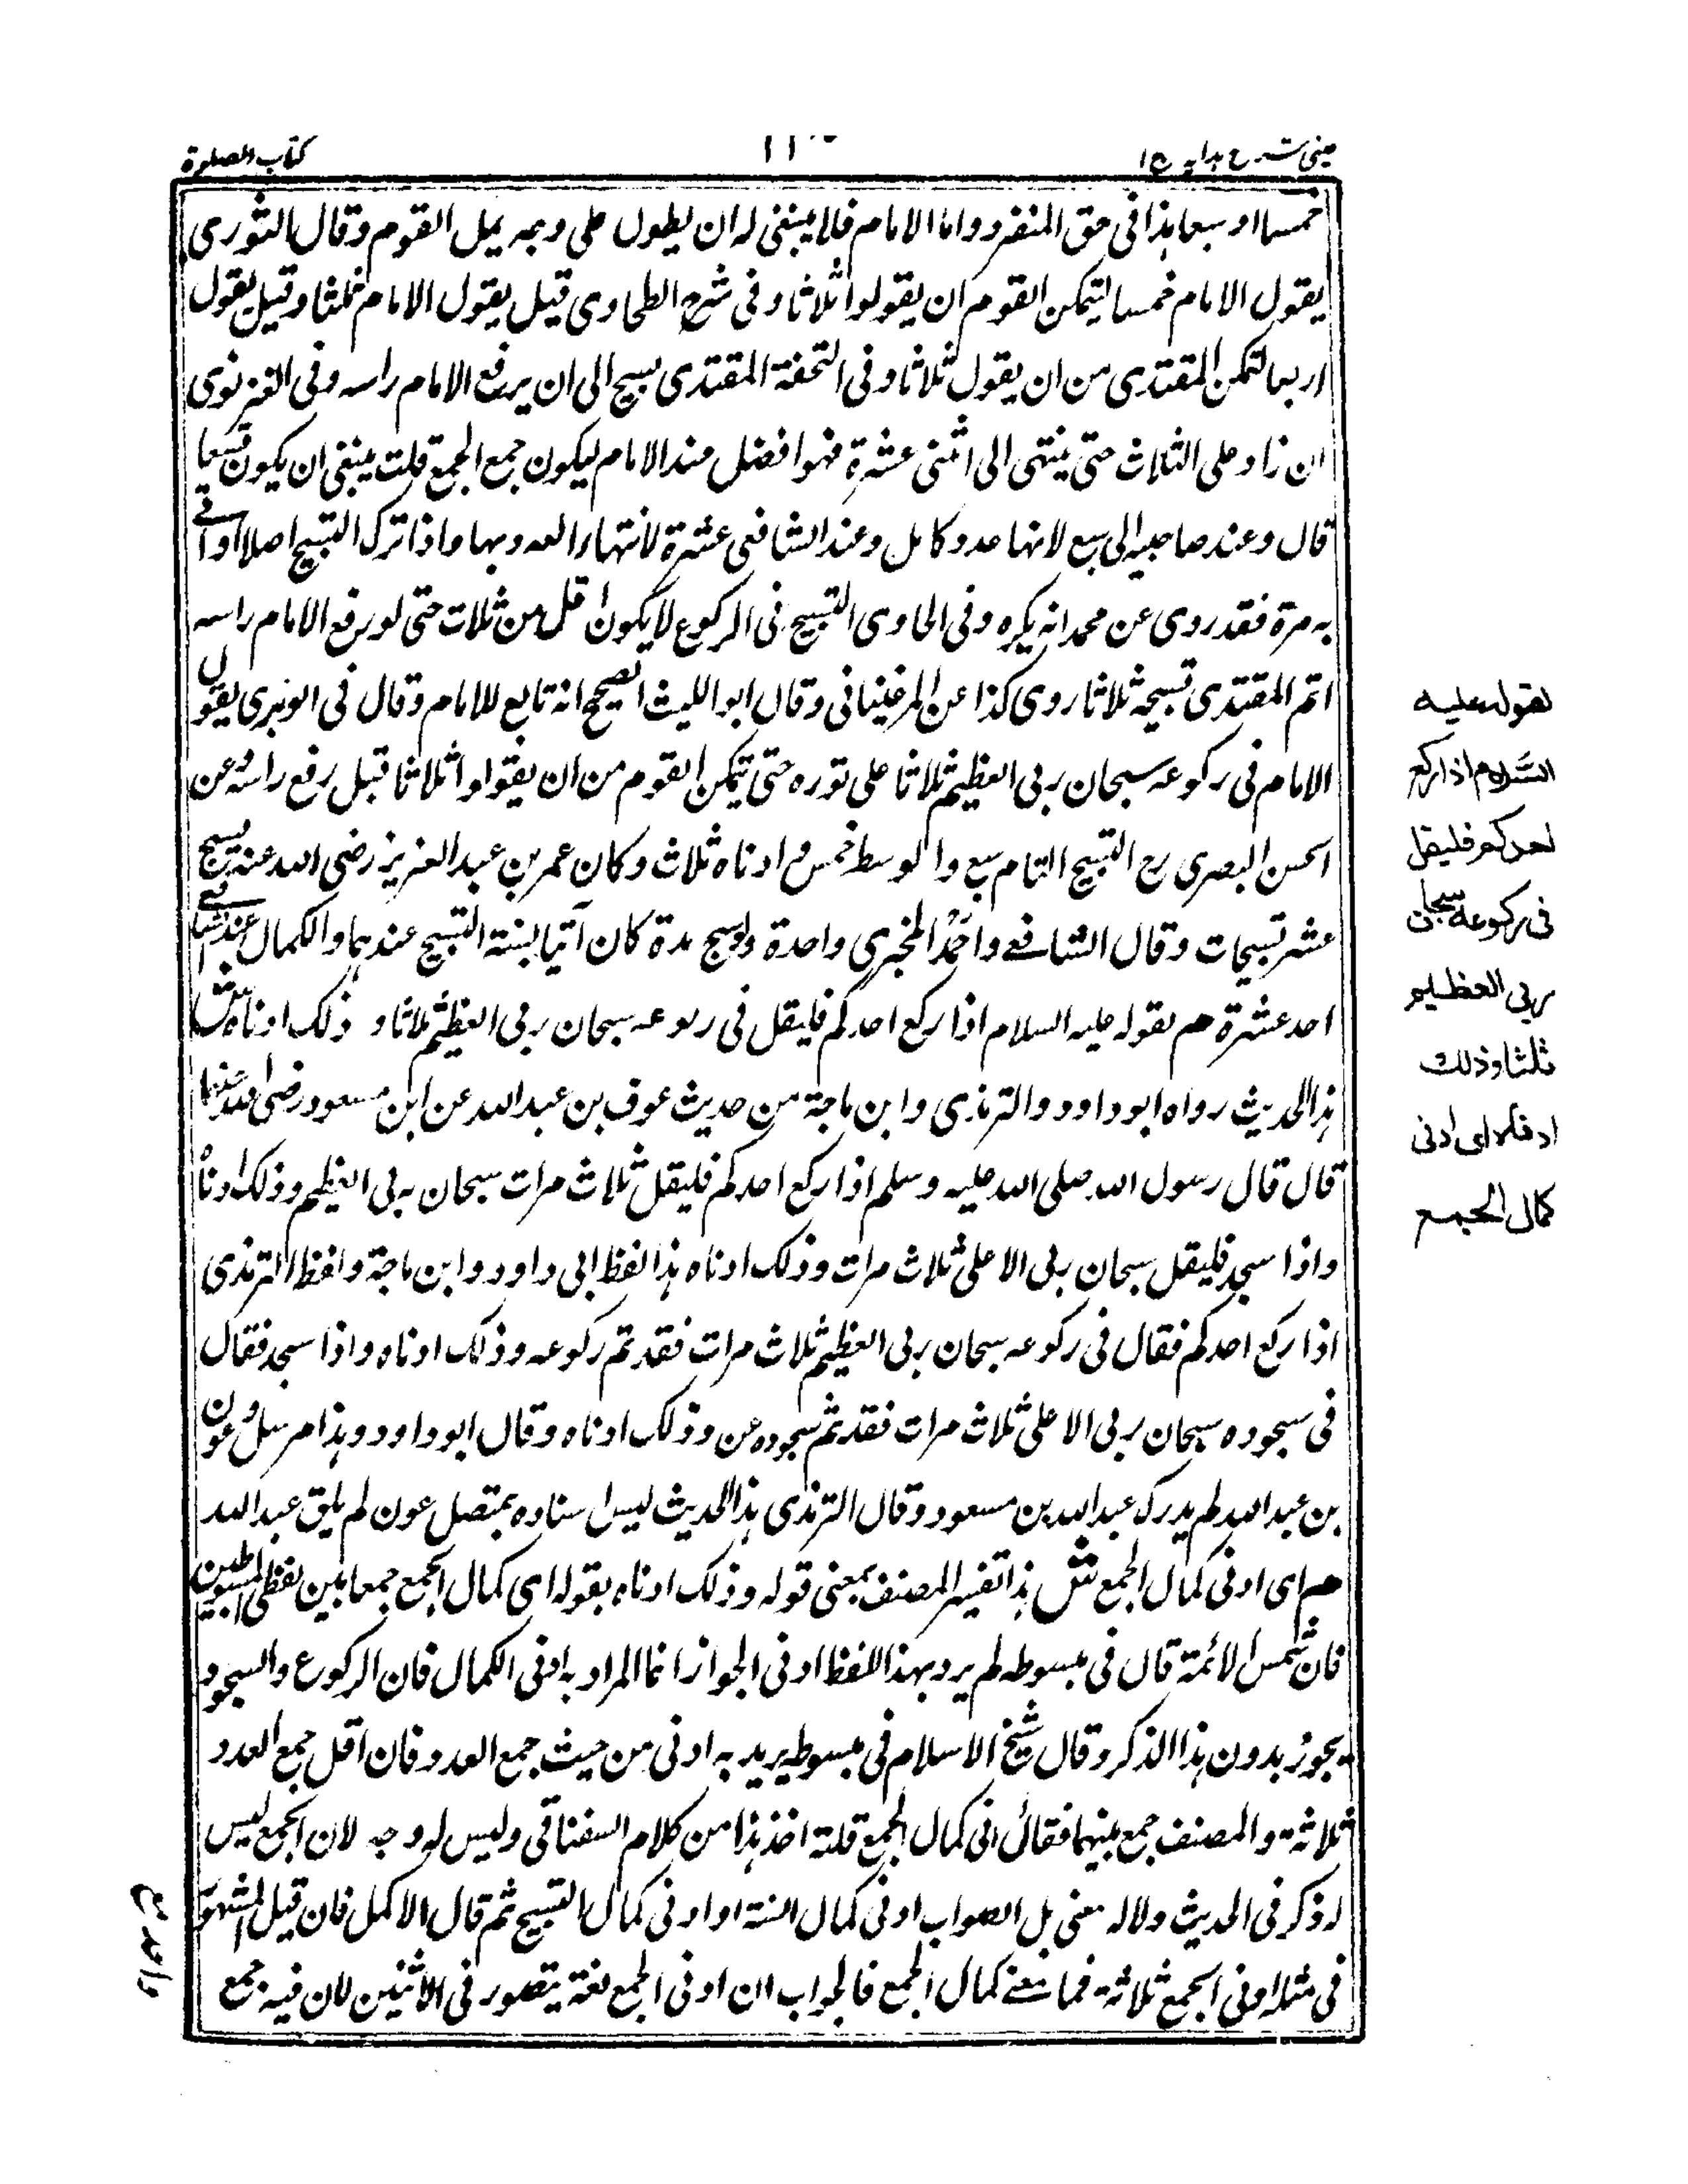 عینی شرح ہدایہ ج ا
کتاب الصلوة
خمسا او سبعا هذا فى حق المنفرد واما الامام فلا ينبغى له ان يطول على وجه يمل القوم وقال الثورى
يقول الامام خمسا ليتمكن القوم ان يقولوا ثلاثا وفى شرح الطحاوى قيل يقول الامام ثلثا وقيل يقول
اربعا لتمكن المقتدى من ان يقول ثلاثا وفى التحفة المقتدى يسبح الى ان يرفع الامام راسه وفى الغزنوى
ان زاد على الثلاث حتى ينتهى الى اثنى عشرة فهو افضل عند الامام ليكون جمع الجمع قلت ينبغى ان يكون تسعا
قال وعند صاحبيه الى سبع لانها عدد كامل وعند الشافعى عشرة لانتهاء العدد بها واذا ترك التسبيح اصلا او اتى
به مرة فقد روى عن محمد انه يكره وفى الحاوى التسبيح فى الركوع لا يكون اقل من ثلاث حتى لو رفع الامام راسه
اتم المقتدى تسبيحه ثلاثا روى كذا عن المرغينانى وقال ابو الليث الصحيح انه تابع للامام وقال فى الوبرى يقول
الامام فى ركوعه سبحان ربى العظيم ثلاثا على توره حتى يتمكن القوم من ان يقولوا ثلاثا قبل رفع راسه وعن
الحسن البصرى رح التسبيح التام سبع والوسط خمس وادناه ثلاث وكان عمر بن عبد العزيز رضى الله عنه يسبح
عشر تسبيحات وقال الشافعى واحمد المجزى واحدة ولو سبح مدة كان آتيا بسنة التسبيح عندهما والكمال عند الشافعى
احد عشرة هم لقوله عليه السلام اذا ركع احدكم فليقل فى ركوعه سبحان ربى العظيم ثلاثا و ذلك ادناه ش
هذا الحديث رواه ابو داود والترمذى وابن ماجة من حديث عوف بن عبد الله عن ابن مسعود رضى الله عنهما
قال قال رسول الله صلى الله عليه وسلم اذا ركع احدكم فليقل ثلاث مرات سبحان ربى العظيم وذلك ادناه
واذا سجد فليقل سبحان ربى الاعلى ثلاث مرات وذلك ادناه هذا لفظ ابى داود وابن ماجة ولفظ الترمذى
اذا ركع احدكم فقال فى ركوعه سبحان ربى العظيم ثلاث مرات فقد تم ركوعه وذلك ادناه واذا سجد فقال
فى سجوده سبحان ربى الاعلى ثلاث مرات فقد تم سجوده عن وذلك ادناه وقال ابو داود وهذا مرسل وعون
بن عبد الله لم يدرك عبد الله بن مسعود وقال الترمذى هذا الحديث ليس اسناده بمتصل عون لم يلق عبد الله
هم اى ادنى كمال الجمع ش هذا تفسير المصنف بمعنى قوله وذلك ادناه بقوله اى كمال الجمع جمعا بين لفظى المبسوطين
فان شمس الائمة قال فى مبسوطه لم يرد بهذا اللفظ ادنى الجواز انما المراد به ادنى الكمال فان الركوع والسجود
يجوز بدون هذا الذكر وقال شيخ الاسلام فى مبسوطه يريد به ادنى من حيث جمع العدد فان اقل جمع العدد
ثلاثة والمصنف جمع بينهما فقال ادنى كمال الجمع قلته اخذ هذا من كلام السغناقى وليس له وجه لان الجمع ليس
له ذكر فى الحديث ولا له معنى بل الصواب ادنى كمال السنة او ادنى كمال التسبيح ثم قال الاكمل فان قيل المشهور
فى مثله ادنى الجمع ثلاثة فما معنى كمال الجمع فالجواب ان ادنى الجمع لغة يتصور فى الاثنين لان فيه جمع
لقوله عليه
السلام اذا ركع
احدكم فليقل
فى ركوعه سبحان
ربى العظيم
ثلثا وذلك
ادناه اى ادنى
كمال الجمع